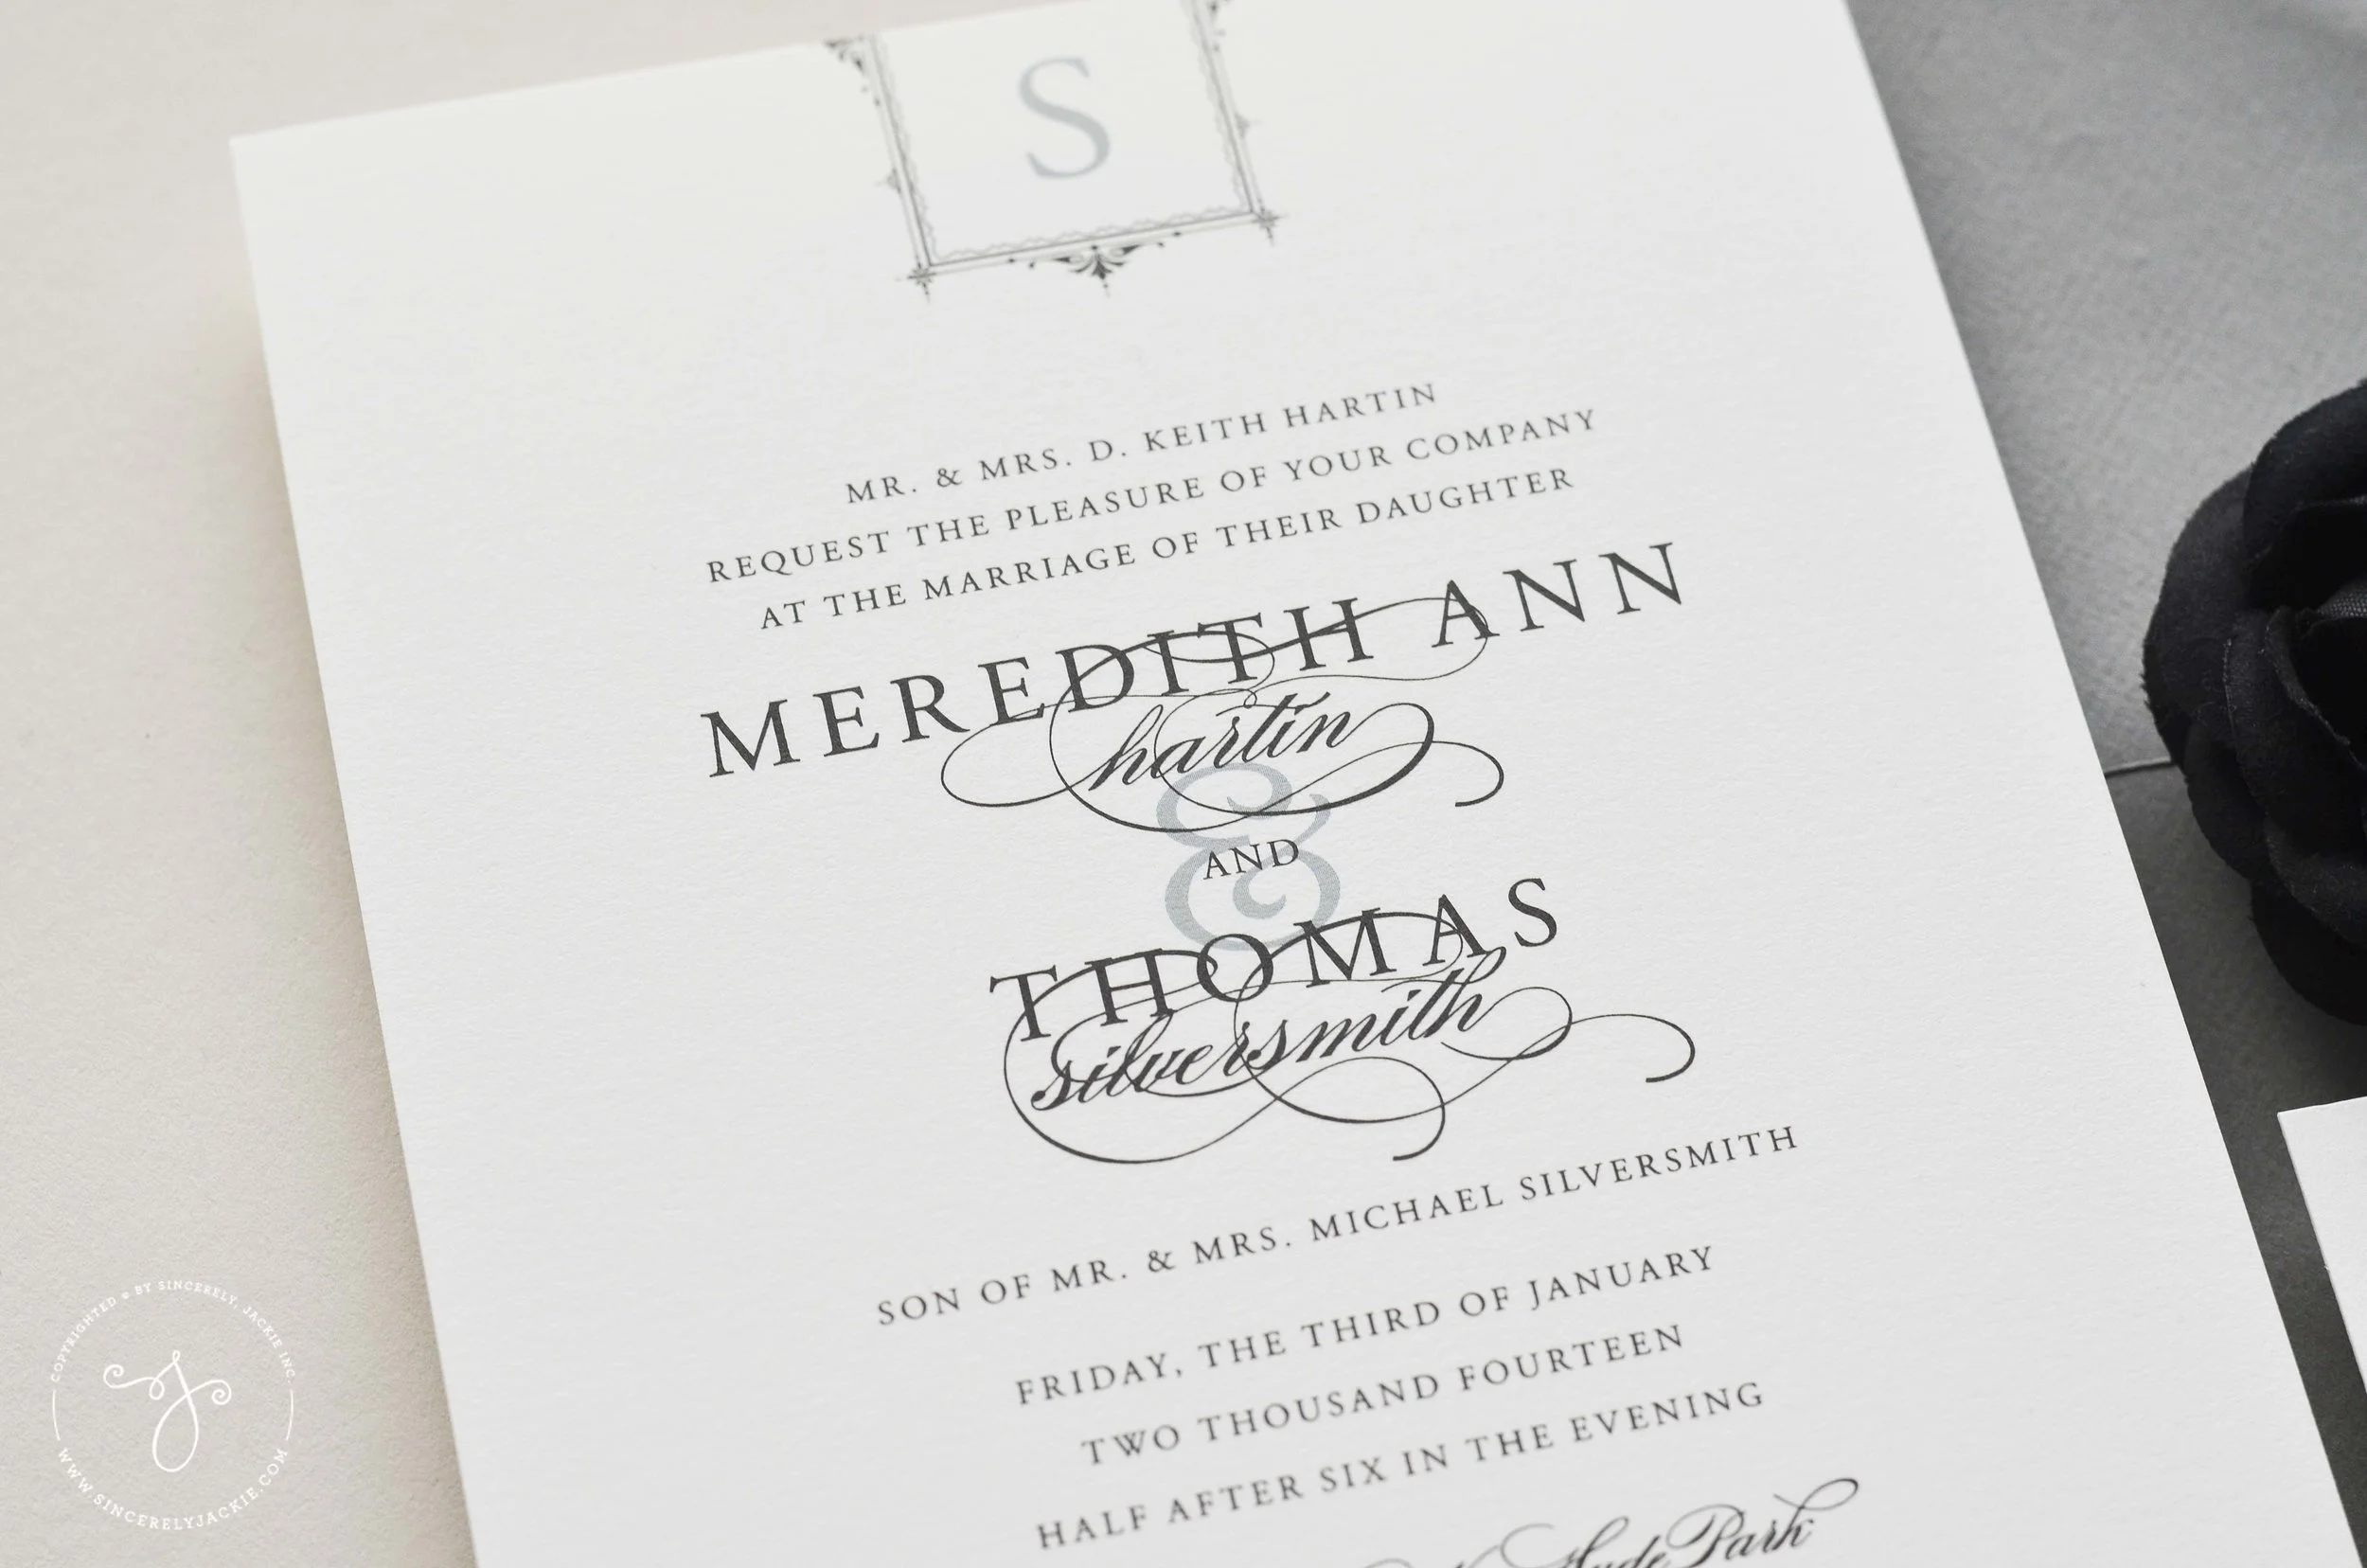 S
MR. & MRS. D. KEITH HARTIN
REQUEST THE PLEASURE OF YOUR COMPANY
AT THE MARRIAGE OF THEIR DAUGHTER
MEREDITH ANN
hartin
&
AND
THOMAS
silversmith
SON OF MR. & MRS. MICHAEL SILVERSMITH
FRIDAY, THE THIRD OF JANUARY
TWO THOUSAND FOURTEEN
HALF AFTER SIX IN THE EVENING
Hyde Park
COPYRIGHTED © BY SINCERELY, JACKIE INC.
WWW.SINCERELYJACKIE.COM